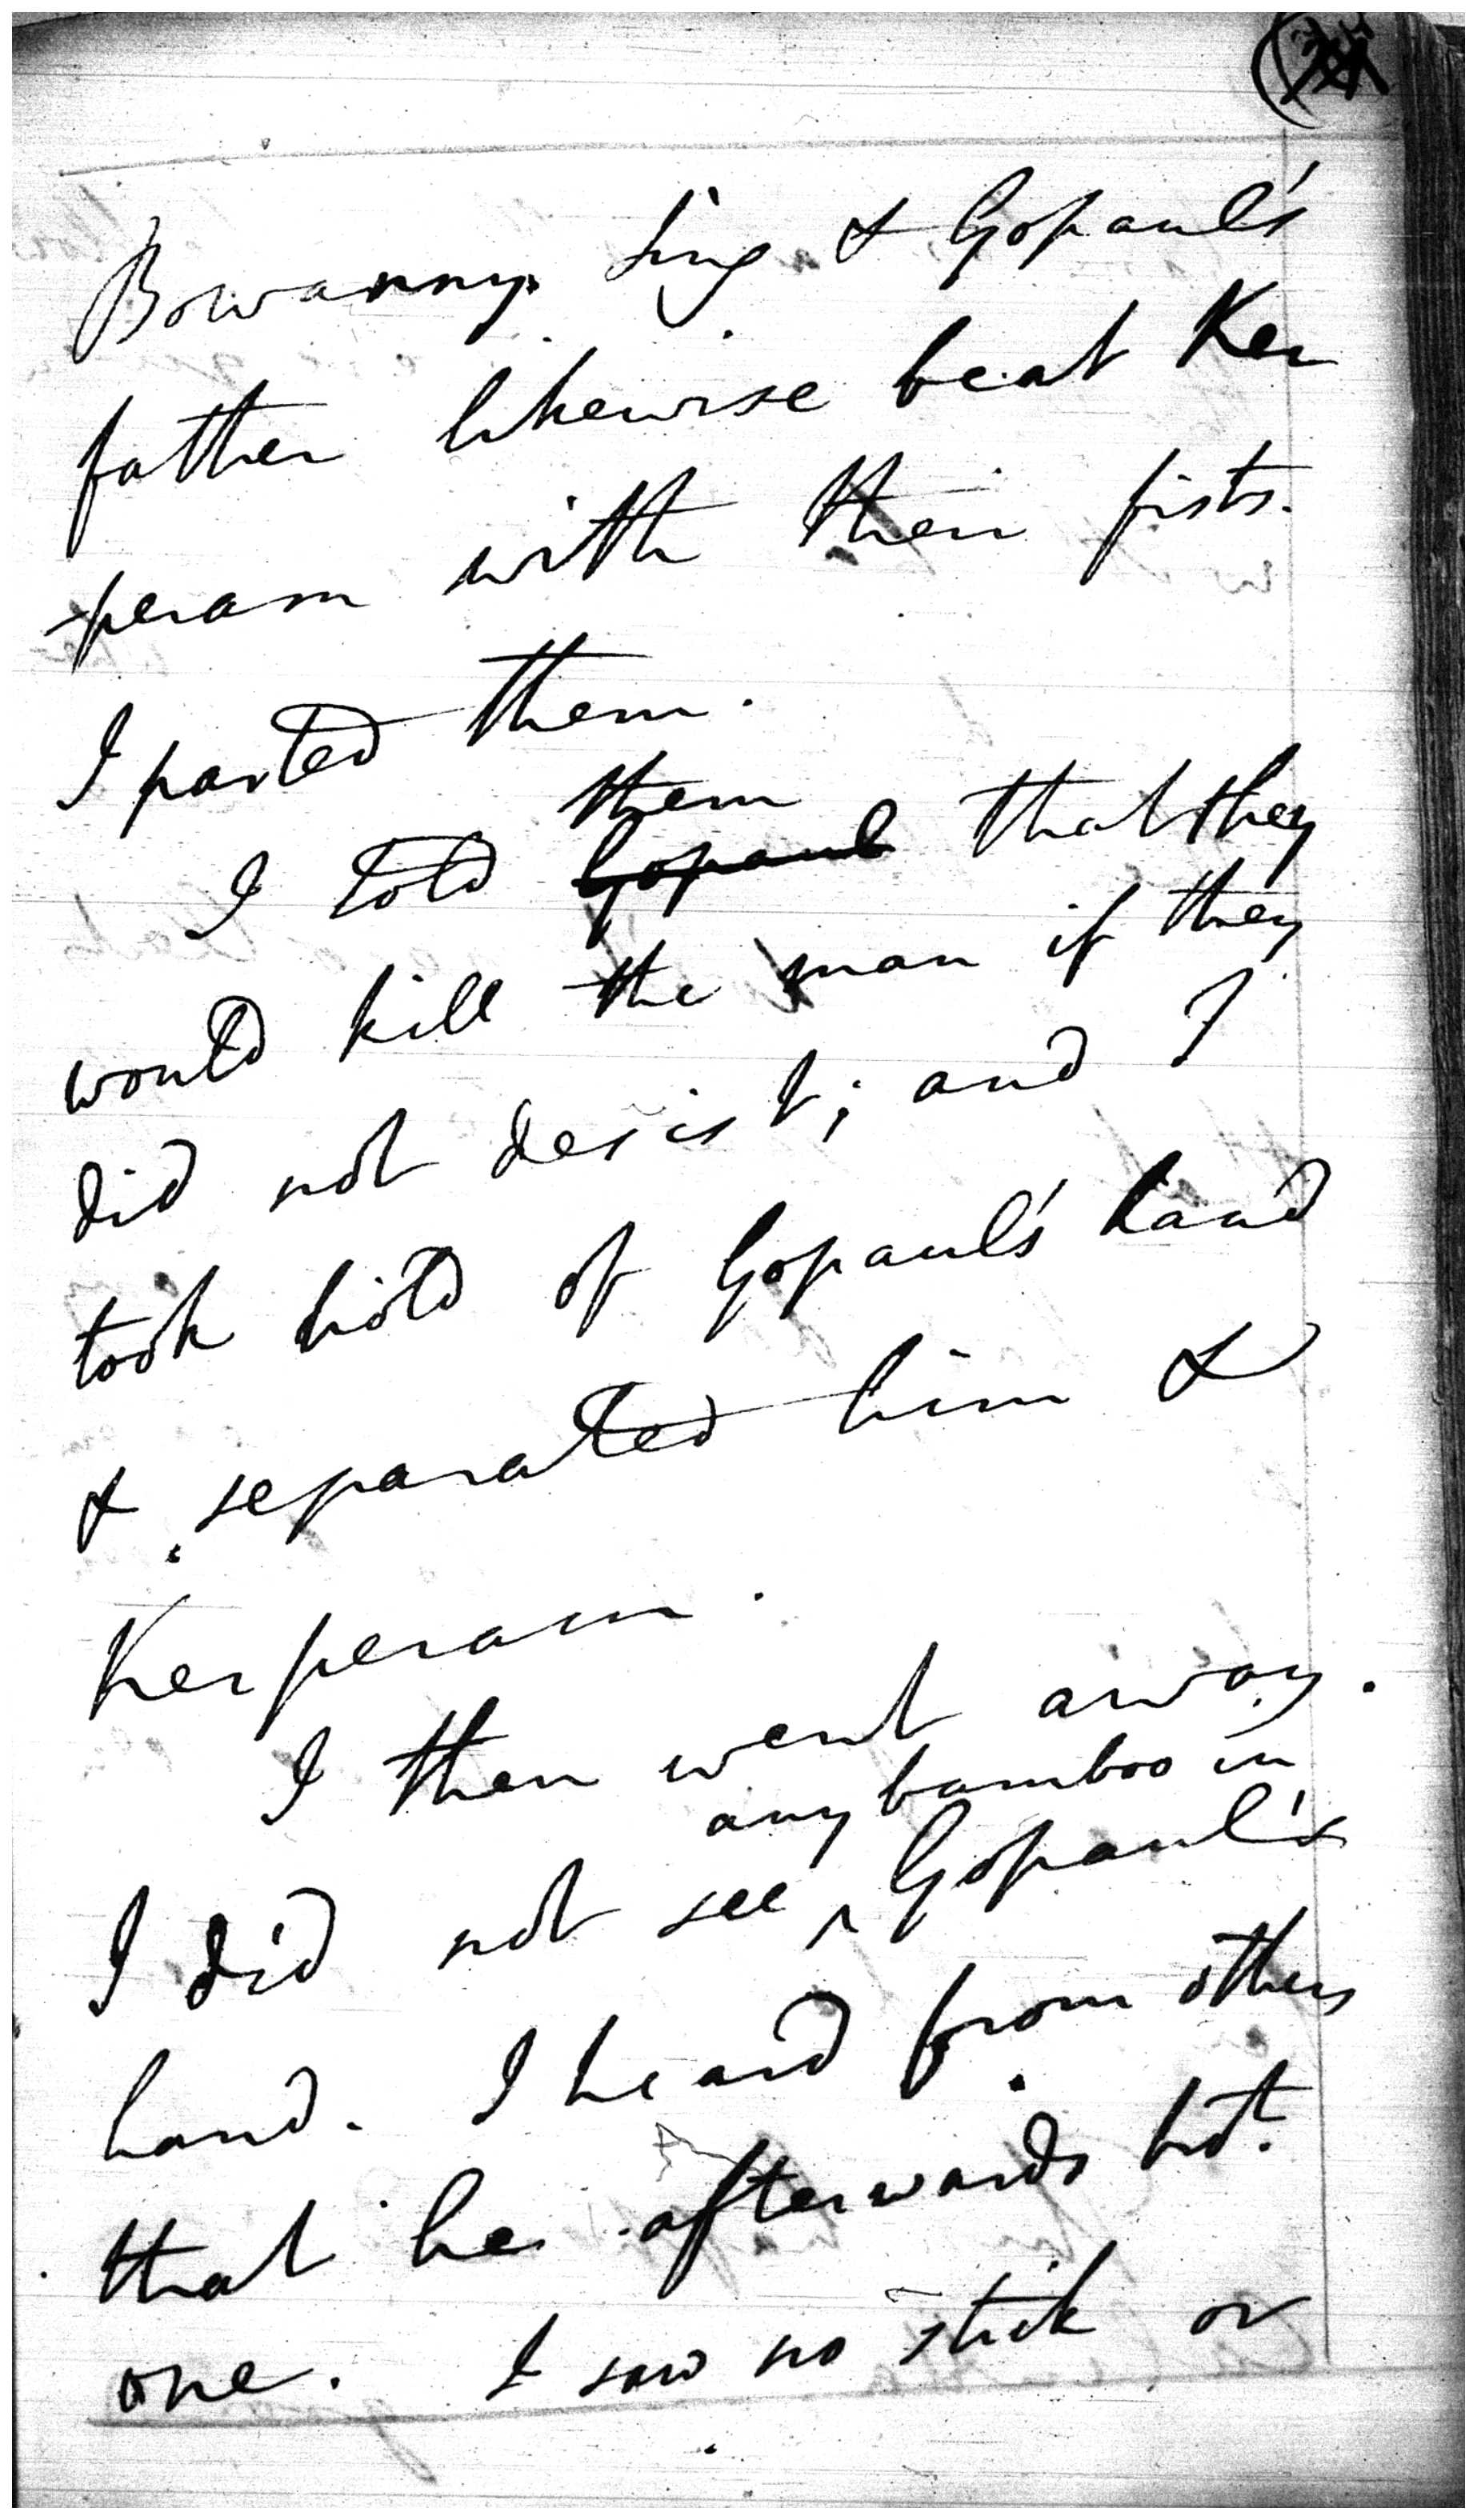 Bowanny Sing & Gopaul's
father likewise beat Ker
-peram with their fists.
I parted them.
them
I told Gopaul that they
would kill the man if they
did not desist; and I
took hold of Gopaul's hand
& separated him &
Kerperam.
I then went away.
any bamboo in
I did not see ^ Gopaul's
hand. I heard from others
that he afterwards
one. I saw no stick or